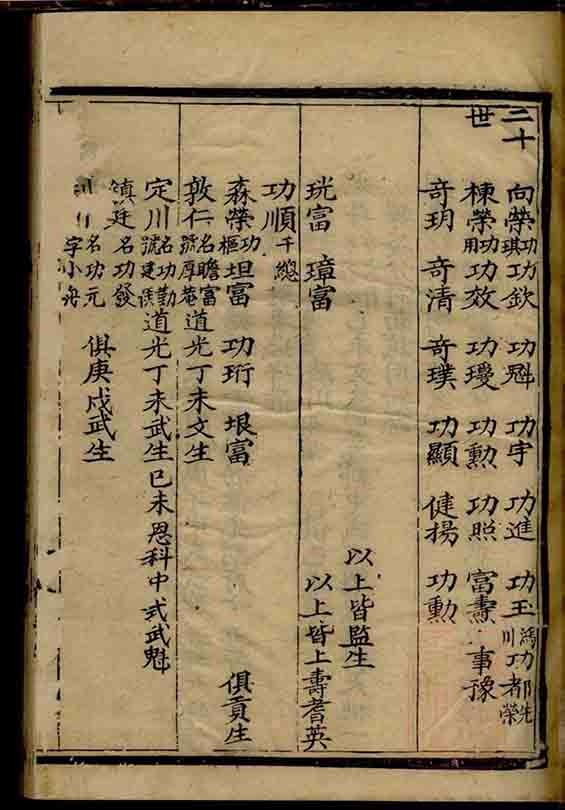 二十世
向榮功琪 功欽 功魁 功宇 功進 功玉鴻川 功者
棟榮功用 功效 功璦 功勲 功照 富燾 事豫
奇玥 奇清 奇璞 功顯 健揚 功勲
以上皆監生
珖富 璋富 以上皆上壽耆英
功順千總
森榮功樞 坦富 功珩 垠富 俱貢生
敦仁名瞻富號厚菴 道光丁未文生
定川名功勤號建侯 道光丁未武生已未恩科中式武魁
鎮廷名功發
名功元字小舟 俱庚戌武生